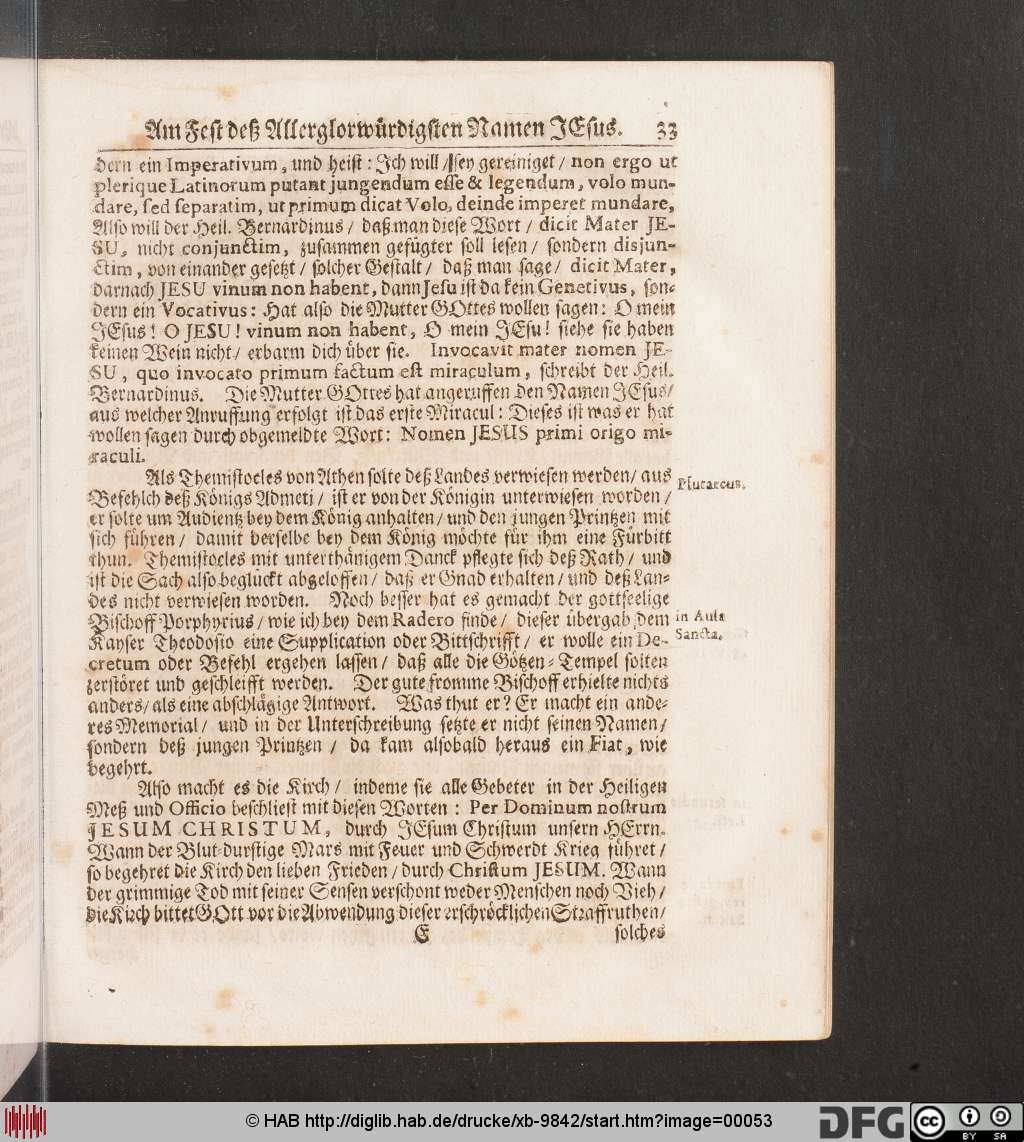 Am Fest deß Allerglorwürdigsten Namen JEsus. 33
dern ein Imperativum, und heist: Ich will / sey gereiniget / non ergo ut
plerique Latinorum putant jungendum esse & legendum, volo mun-
dare, sed separatim, ut primum dicat Volo, deinde imperet mundare,
Also will der Heil. Bernardinus / daß man diese Wort / dicit Mater JE-
SU, nicht conjunctim, zusammen gefügter soll lesen / sondern disjun-
ctim, von einander gesetzt / solcher Gestalt / daß man sage / dicit Mater,
darnach JESU vinum non habent, dann Jesu ist da kein Genetivus, son-
dern ein Vocativus: Hat also die Mutter GOttes wollen sagen: O mein
JEsus! O JESU! vinum non habent, O mein JEsu! siehe sie haben
keinen Wein nicht / erbarm dich über sie. Invocavit mater nomen JE-
SU, quo invocato primum factum est miraculum, schreibt der Heil.
Bernardinus. Die Mutter GOttes hat angeruffen den Namen JEsus /
aus welcher Anruffung erfolgt ist das erste Miracul: Dieses ist was er hat
wollen sagen durch obgemeldte Wort: Nomen JESUS primi origo mi-
raculi.
Als Themistocles von Athen solte deß Landes verwiesen werden / aus
Befehlch deß Königs Admeti / ist er von der Königin unterwiesen worden /
er solte um Audientz bey dem König anhalten / und den jungen Printzen mit
sich führen / damit derselbe bey dem König möchte für ihm eine Fürbitt
thun. Themistocles mit unterthänigem Danck pflegte sich deß Rath / und
ist die Sach also beglückt abgeloffen / daß er Gnad erhalten / und deß Lan-
des nicht verwiesen worden. Noch besser hat es gemacht der gottseelige
Bischoff Porphyrius / wie ich bey dem Radero finde / dieser übergab dem
Kayser Theodosio eine Supplication oder Bittschrifft / er wolle ein De-
cretum oder Befehl ergehen lassen / daß alle die Götzen-Tempel solten
zerstöret und geschleifft werden. Der gute fromme Bischoff erhielte nichts
anders / als eine abschlägige Antwort. Was thut er? Er macht ein ande-
res Memorial / und in der Unterschreibung setzte er nicht seinen Namen /
sondern deß jungen Printzen / da kam alsobald heraus ein Fiat, wie
begehrt.
Also macht es die Kirch / indeme sie alle Gebeter in der Heiligen
Meß und Officio beschliest mit diesen Worten: Per Dominum nostrum
JESUM CHRISTUM, durch JEsum Christum unsern HErrn.
Wann der Blut-durstige Mars mit Feuer und Schwerdt Krieg führet /
so begehret die Kirch den lieben Frieden / durch Christum JESUM. Wann
der grimmige Tod mit seiner Sensen verschont weder Menschen noch Vieh /
die Kirch bittet GOtt vor die Abwendung dieser erschröcklichen Straffruthen /
E solches
Plutarcus.
in Aula
Sancta.
© HAB http://diglib.hab.de/drucke/xb-9842/start.htm?image=00053
DFG cc BY SA